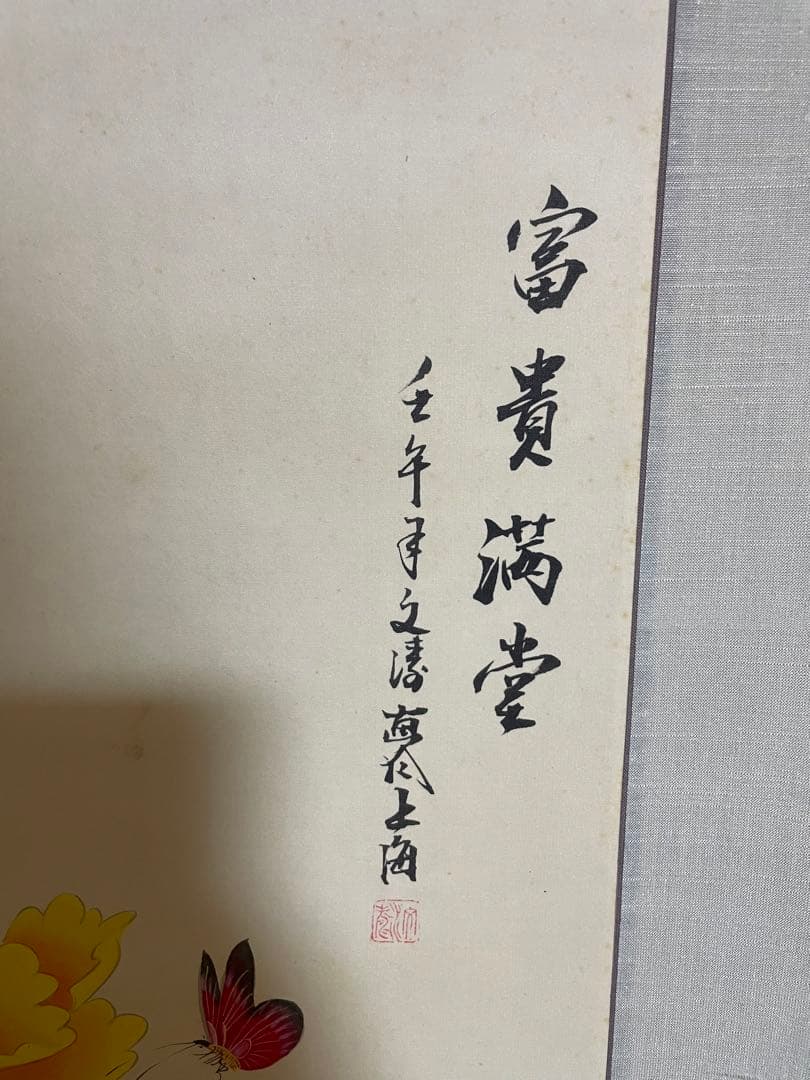 富貴満堂
壬午年文濤畫於上海